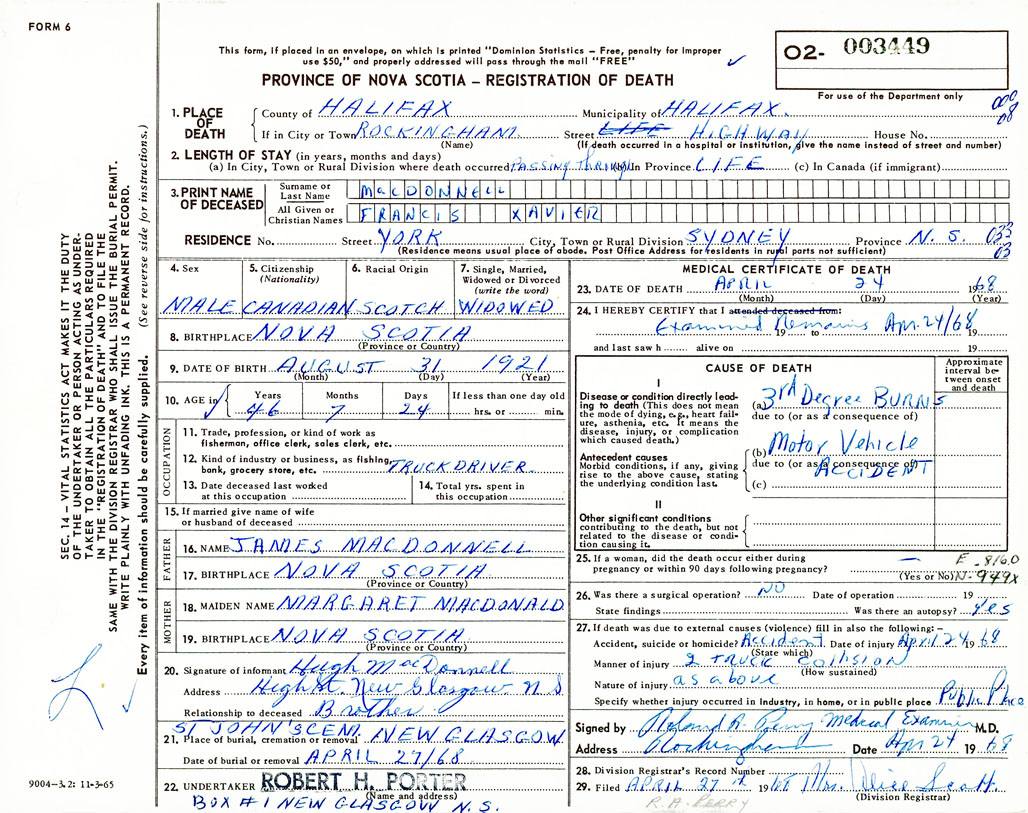 FORM 6
This form, if placed in an envelope, on which is printed "Dominion Statistics – Free, penalty for improper
use $50," and properly addressed will pass through the mail "FREE"
O2- 003449
PROVINCE OF NOVA SCOTIA – REGISTRATION OF DEATH
For use of the Department only
1. PLACE OF DEATH
County of HALIFAX Municipality of HALIFAX. 000 08
If in City or Town ROCKINGHAM Street LIFE HIGHWAY House No.
(Name) (If death occurred in a hospital or institution, give the name instead of street and number)
2. LENGTH OF STAY (in years, months and days)
(a) In City, Town or Rural Division where death occurred PASSING THROUGH (b) In Province LIFE (c) In Canada (if immigrant)
3. PRINT NAME OF DECEASED
Surname or Last Name MacDONNELL
All Given or Christian Names FRANCIS XAVIER
RESIDENCE No. Street YORK City, Town or Rural Division SYDNEY Province N. S. 033 03
(Residence means usual place of abode. Post Office Address for residents in rural parts not sufficient)
4. Sex 5. Citizenship (Nationality) 6. Racial Origin 7. Single, Married, Widowed or Divorced (write the word)
MALE CANADIAN SCOTCH WIDOWED
8. BIRTHPLACE NOVA SCOTIA
(Province or Country)
9. DATE OF BIRTH AUGUST 31 1921
(Month) (Day) (Year)
10. AGE in Years Months Days If less than one day old
46 7 24 hrs. or min.
OCCUPATION
11. Trade, profession, or kind of work as
fisherman, office clerk, sales clerk, etc.
12. Kind of industry or business, as fishing,
bank, grocery store, etc. TRUCK DRIVER
13. Date deceased last worked
at this occupation
14. Total yrs. spent in
this occupation
15. If married give name of wife
or husband of deceased
FATHER
16. NAME JAMES MACDONNELL
17. BIRTHPLACE NOVA SCOTIA
(Province or Country)
MOTHER
18. MAIDEN NAME MARGARET MACDONALD
19. BIRTHPLACE NOVA SCOTIA
(Province or Country)
20. Signature of informant Hugh MacDonnell
Address High St. New Glasgow N S
Relationship to deceased Brother
ST JOHN'S CEM. NEW GLASGOW
21. Place of burial, cremation or removal
Date of burial or removal APRIL 27/68
22. UNDERTAKER ROBERT H. PORTER
(Name and address)
BOX #1 NEW GLASGOW N.S.
MEDICAL CERTIFICATE OF DEATH
23. DATE OF DEATH APRIL 24 1968
(Month) (Day) (Year)
24. I HEREBY CERTIFY that I attended deceased from:
Examined Remains Apr. 24/68
19 to 19
and last saw h alive on 19
CAUSE OF DEATH
Approximate interval between onset and death
I
Disease or condition directly leading to death (This does not mean the mode of dying, e.g., heart failure, asthenia, etc. It means the disease, injury, or complication which caused death.)
(a) 3rd Degree BURNS
due to (or as a consequence of)
Antecedent causes
Morbid conditions, if any, giving rise to the above cause, stating the underlying condition last.
(b) Motor Vehicle
due to (or as a consequence of)
ACCIDENT
(c)
II
Other significant conditions
contributing to the death, but not
related to the disease or condition causing it.
25. If a woman, did the death occur either during
pregnancy or within 90 days following pregnancy? —
(Yes or No)
E-8160
N-949X
26. Was there a surgical operation? NO Date of operation 19
State findings Was there an autopsy? Yes
27. If death was due to external causes (violence) fill in also the following:–
Accident, suicide or homicide? Accident Date of injury April 24 1968
(State which)
Manner of injury 2 TRUCK COLLISION
(How sustained)
Nature of injury as above
Specify whether injury occurred in Industry, in home, or in public place Public Place
Signed by Roland A. Perry Medical Examiner M.D.
Address Rockingham Date Apr 24 1968
28. Division Registrar's Record Number
29. Filed APRIL 27th 1968 Mrs. Alice Scott.
(Division Registrar)
R. A. PERRY
SEC. 14 – VITAL STATISTICS ACT MAKES IT THE DUTY
OF THE UNDERTAKER OR PERSON ACTING AS UNDER-
TAKER TO OBTAIN ALL THE PARTICULARS REQUIRED
IN THE "REGISTRATION OF DEATH" AND TO FILE THE
SAME WITH THE DIVISION REGISTRAR WHO SHALL ISSUE THE BURIAL PERMIT.
WRITE PLAINLY WITH UNFADING INK. THIS IS A PERMANENT RECORD.
Every item of information should be carefully supplied. (See reverse side for instructions.)
9004-3.2: 11-3-65